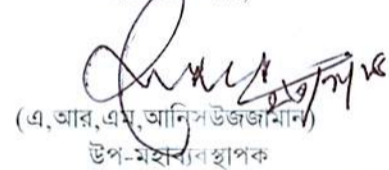 (এ,আর,এম,আনিসউজজামান)
উপ-মহাব্যবস্থাপক